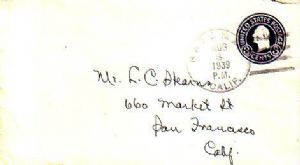 UNITED STATES POSTAGE
CENTS
AUG
1939
P.M.
CALIF.
Mr. L. C. Stearns
660 Market St
San Francisco
Calif.